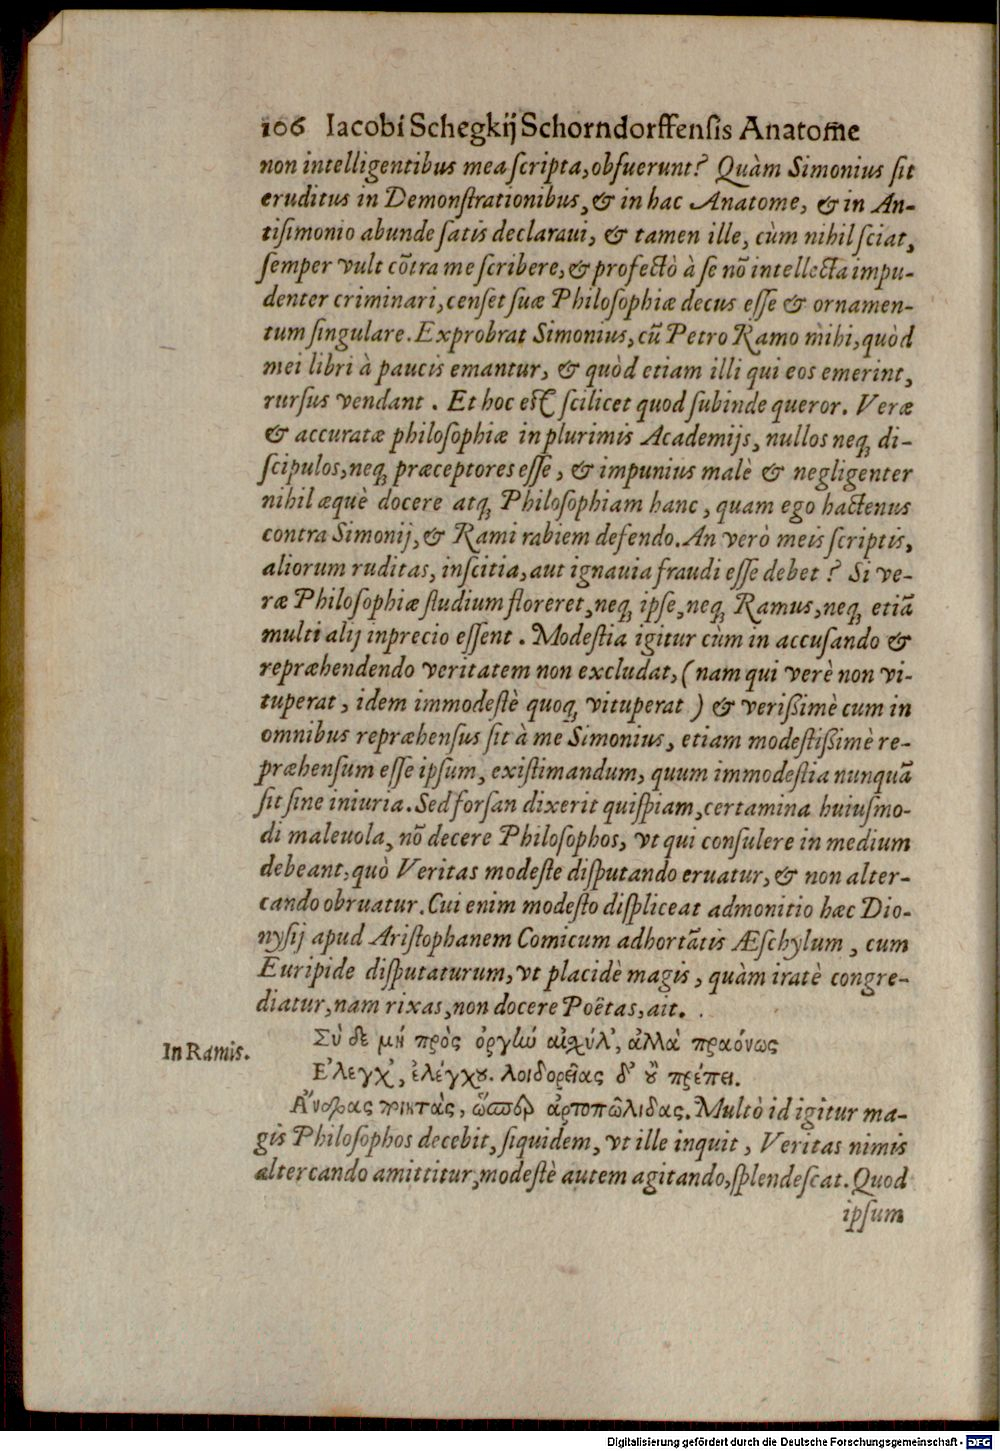 106 Iacobi Schegkij Schorndorffensis Anatome
non intelligentibus mea scripta, obfuerunt? Quàm Simonius sit
eruditus in Demonstrationibus, & in hac Anatome, & in An-
tisimonio abunde satis declaraui, & tamen ille, cùm nihil sciat,
semper vult cõtra me scribere, & profectò à se nõ intellecta impu-
denter criminari, censet suæ Philosophiæ decus esse & ornamen-
tum singulare. Exprobrat Simonius, cũ Petro Ramo mihi, quòd
mei libri à paucis emantur, & quòd etiam illi qui eos emerint,
rursus vendant. Et hoc est scilicet quod subinde queror. Veræ
& accuratæ philosophiæ in plurimis Academijs, nullos neq; di-
scipulos, neq; præceptores esse, & impunius malè & negligenter
nihil æquè docere atq; Philosophiam hanc, quam ego hactenus
contra Simonij, & Rami rabiem defendo. An verò meis scriptis,
aliorum ruditas, inscitia, aut ignauia fraudi esse debet? Si ve-
ræ Philosophiæ studium floreret, neq; ipse, neq; Ramus, neq; etiã
multi alij in precio essent. Modestia igitur cùm in accusando &
repræhendendo veritatem non excludat, (nam qui verè non vi-
tuperat, idem immodestè quoq; vituperat) & verißimè cum in
omnibus repræhensus sit à me Simonius, etiam modestißimè re-
præhensum esse ipsum, existimandum, quum immodestia nunquã
sit sine iniuria. Sed forsan dixerit quispiam, certamina huiusmo-
di maleuola, nõ decere Philosophos, vt qui consulere in medium
debeant, quò Veritas modeste disputando eruatur, & non alter-
cando obruatur. Cui enim modesto displiceat admonitio hæc Dio-
nysij apud Aristophanem Comicum adhortãtis Æschylum, cum
Euripide disputaturum, vt placidè magis, quàm iratè congre-
diatur, nam rixas, non docere Poëtas, ait.
Σὺ δε μή πρὸς ὀργὼ αἰχύλ', ἀλλὰ πραόνως
In Ramis.
Ἔλεγχ', ἐλέγχου. λοιδορεῖας δ' οὐ πρέπει.
Ἄνδρας ποιητὰς, ὥσπερ ἀρτοπώλιδας. Multò id igitur ma-
gis Philosophos decebit, siquidem, vt ille inquit, Veritas nimis
altercando amittitur, modestè autem agitando, splendescat. Quod
ipsum
Digitalisierung gefördert durch die Deutsche Forschungsgemeinschaft - DFG